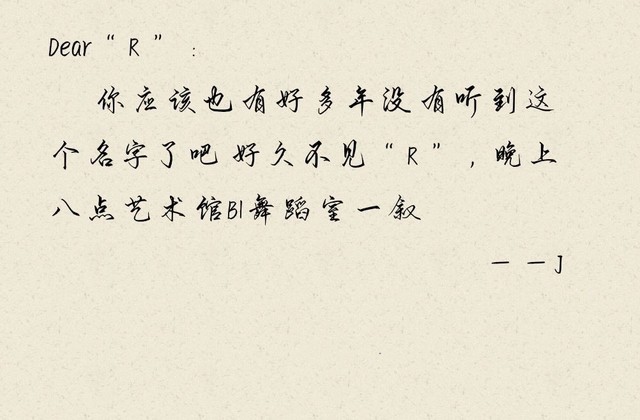 Dear“R”：
你应该也有好多年没有听到这
个名字了吧 好久不见“R”，晚上
八点艺术馆B1舞蹈室一叙
——J